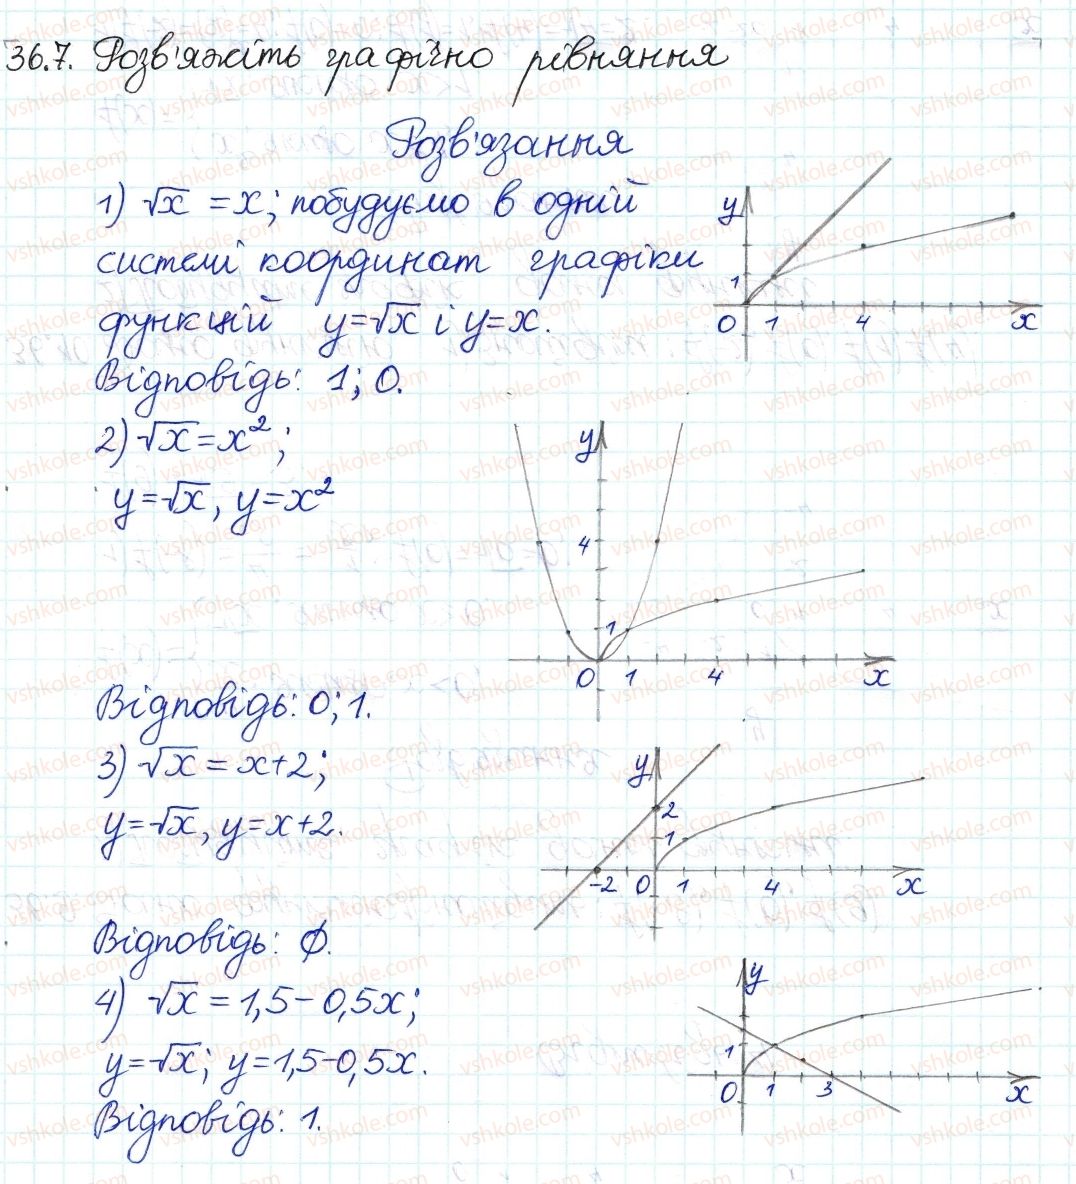 36.7. Розв'яжіть графічно рівняння
Розв'язання
1) √x = x; побудуємо в одній
системі координат графіки
функцій y=√x і y=x.
Відповідь: 1; 0.
y
1
0 1 4 x
2) √x = x²;
y=√x, y=x²
y
4
1
0 1 4 x
Відповідь: 0; 1.
3) √x = x+2;
y=√x, y=x+2.
y
2
1
-2 0 1 4 x
Відповідь: ∅.
4) √x = 1,5 - 0,5x;
y=√x; y=1,5-0,5x.
Відповідь: 1.
y
1
0 1 3 x
vshkole.com